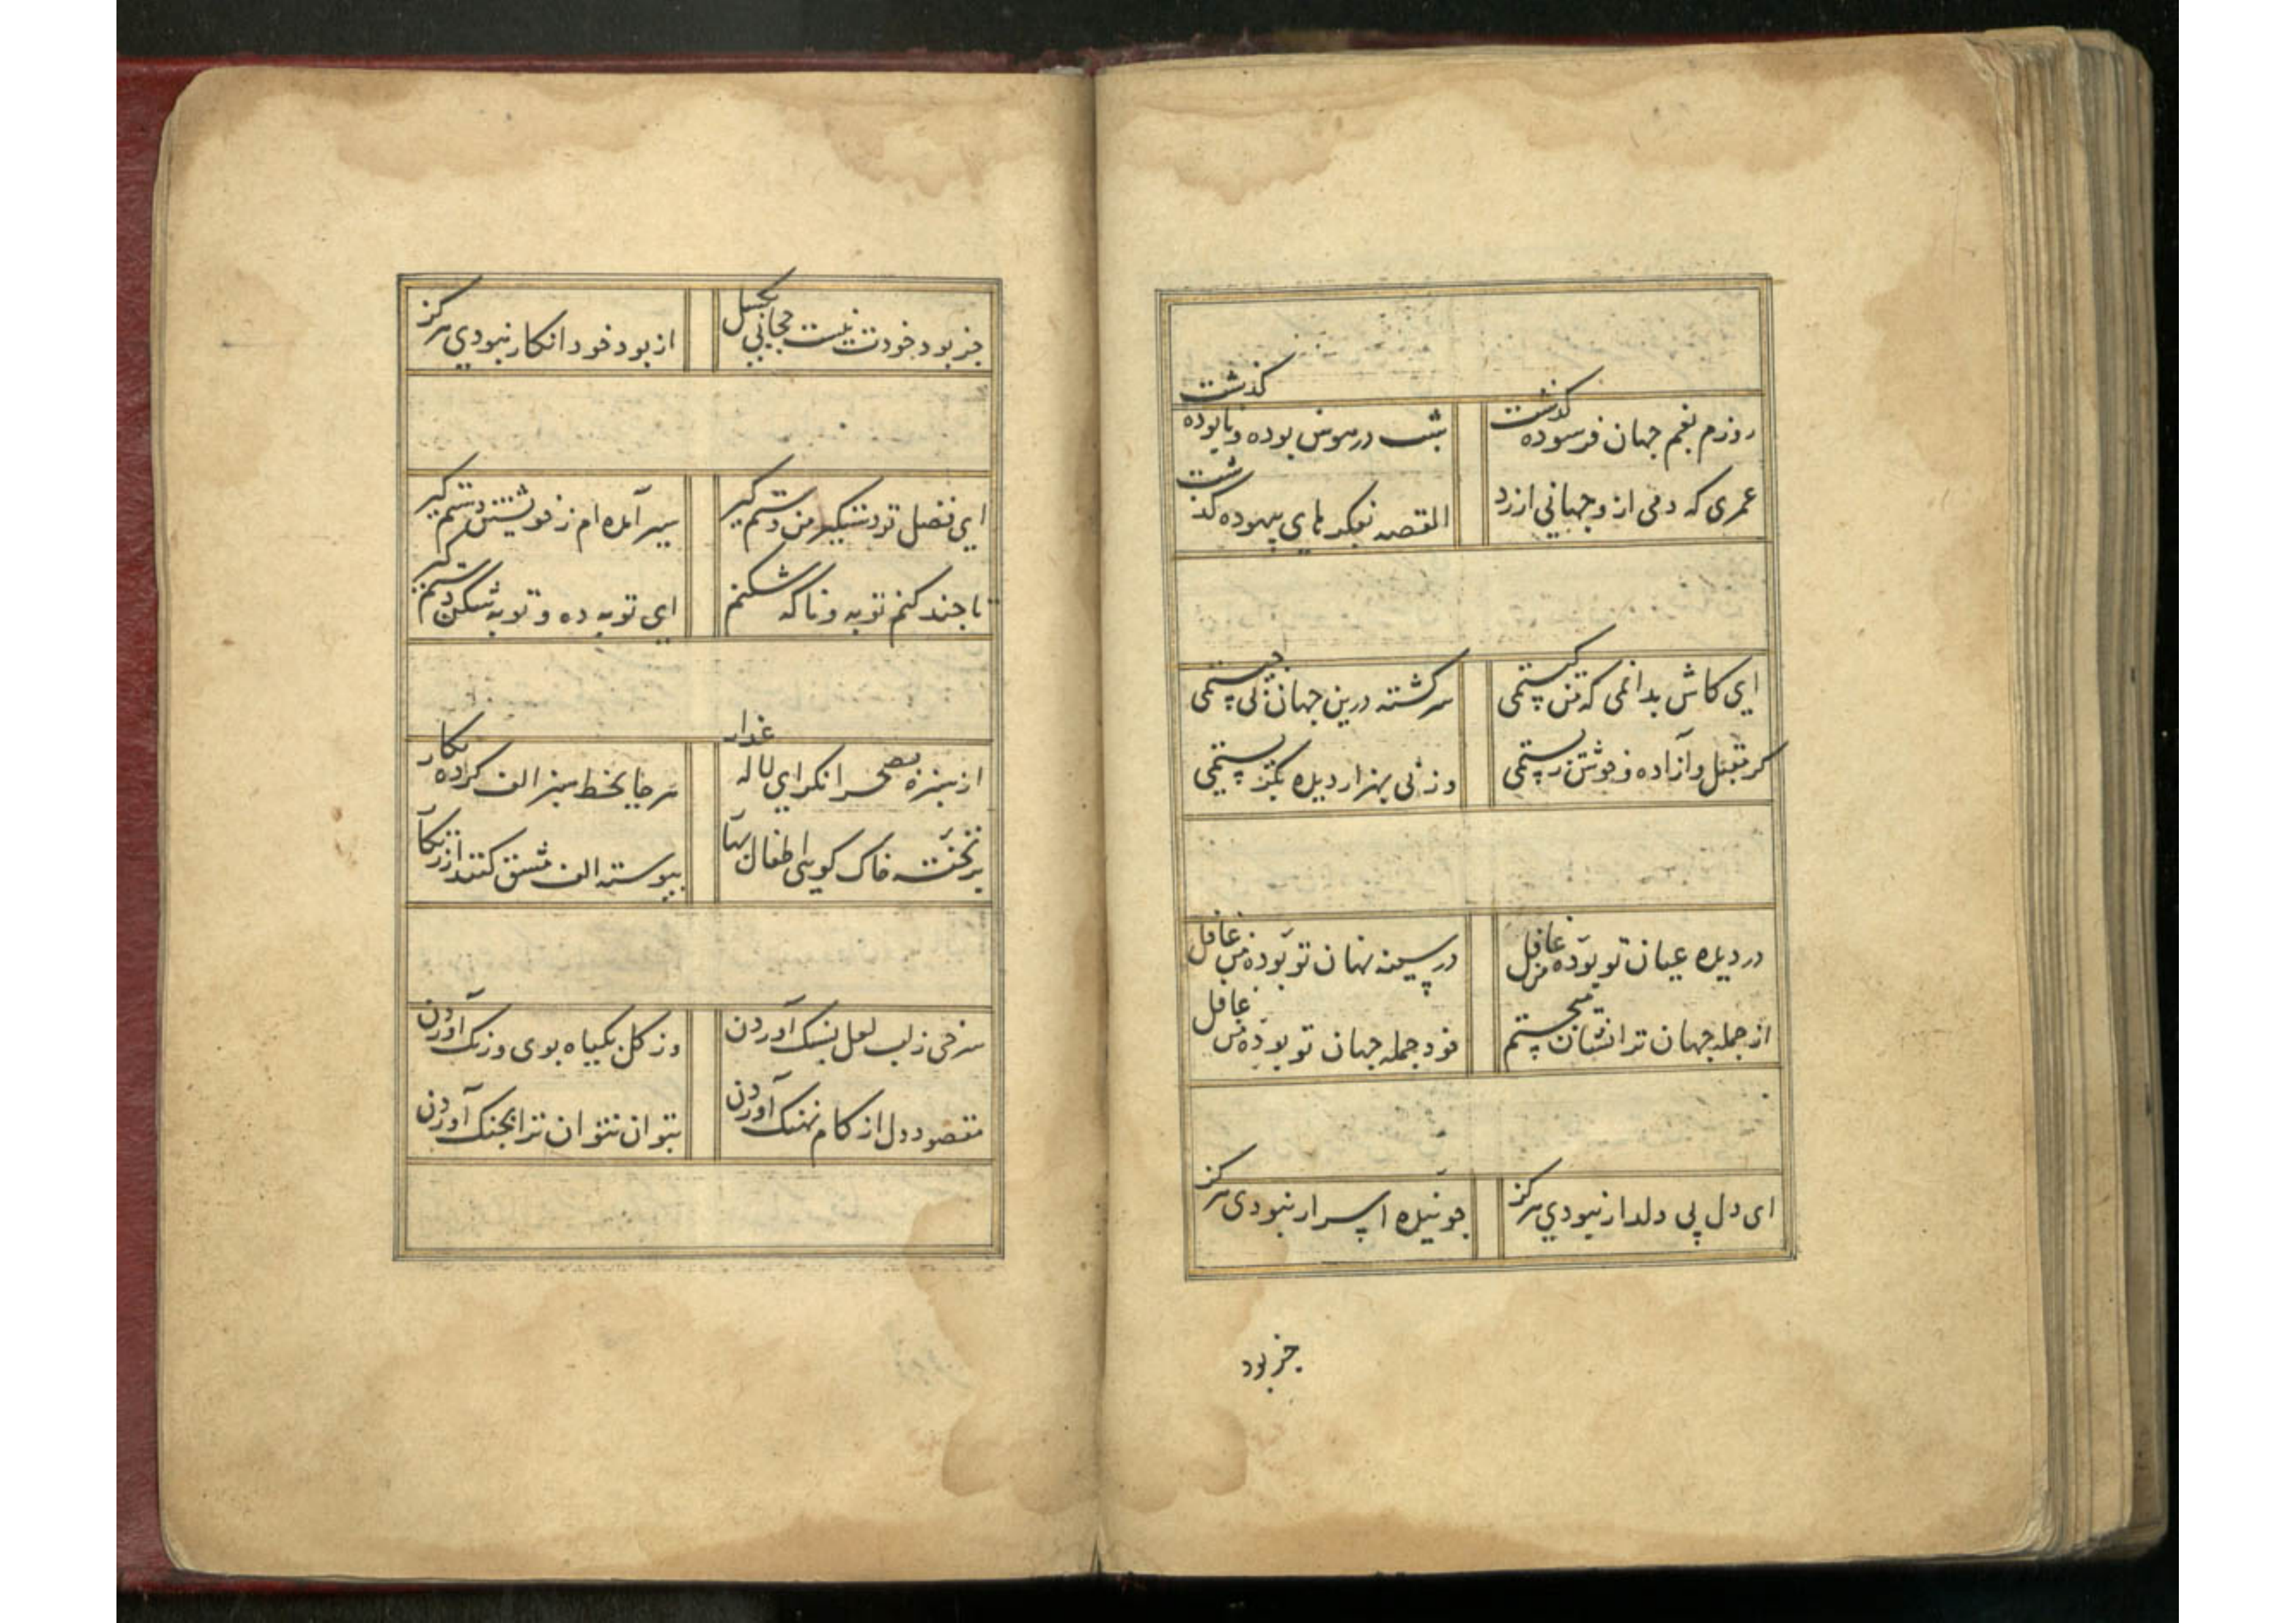 روزم بغم جهان فرسوده گذشت
شب در هوس بوده و نابوده گذشت
عمری که دمی ازو جهانی ارزد
القصه بفکرهای بیهوده گذشت
ای کاش بدانمی که من کیستمی
سرگشته درین جهان پی چیستمی
گر مقبل و آزاده و خوش زیستمی
ورنی بهزار دیده بگریستمی
در دیده عیان تو بودهٔ من غافل
در سینه نهان تو بودهٔ من غافل
از جمله جهان ترا نشان میجستم
خود جمله جهان تو بودهٔ من غافل
ای دل پی دلدار نبودی هرگز
جویندهٔ اسرار نبودی هرگز
جز بود
جز بود خودت نیست حجابی بگسل
از بود خود انکار نبودی هرگز
ای فضل تو دستگیر من دستم گیر
سیر آمده ام ز خویشتن دستم گیر
تا چند کنم توبه و تا که شکنم
ای توبه ده و توبه شکن دستم گیر
از سبزه بصحرا نگر ای لاله عذار
هر جا بخط سبز الف کرده نگار
بر تختهٔ خاک گویی اطفال نبات
پیوسته الف مشق کنند از زنگار
سرخی ز لب لعل بسنگ آوردن
وز گل بگیاه بوی و رنگ آوردن
مقصود دل از کام نهنگ آوردن
بتوان نتوان ترا بچنگ آوردن